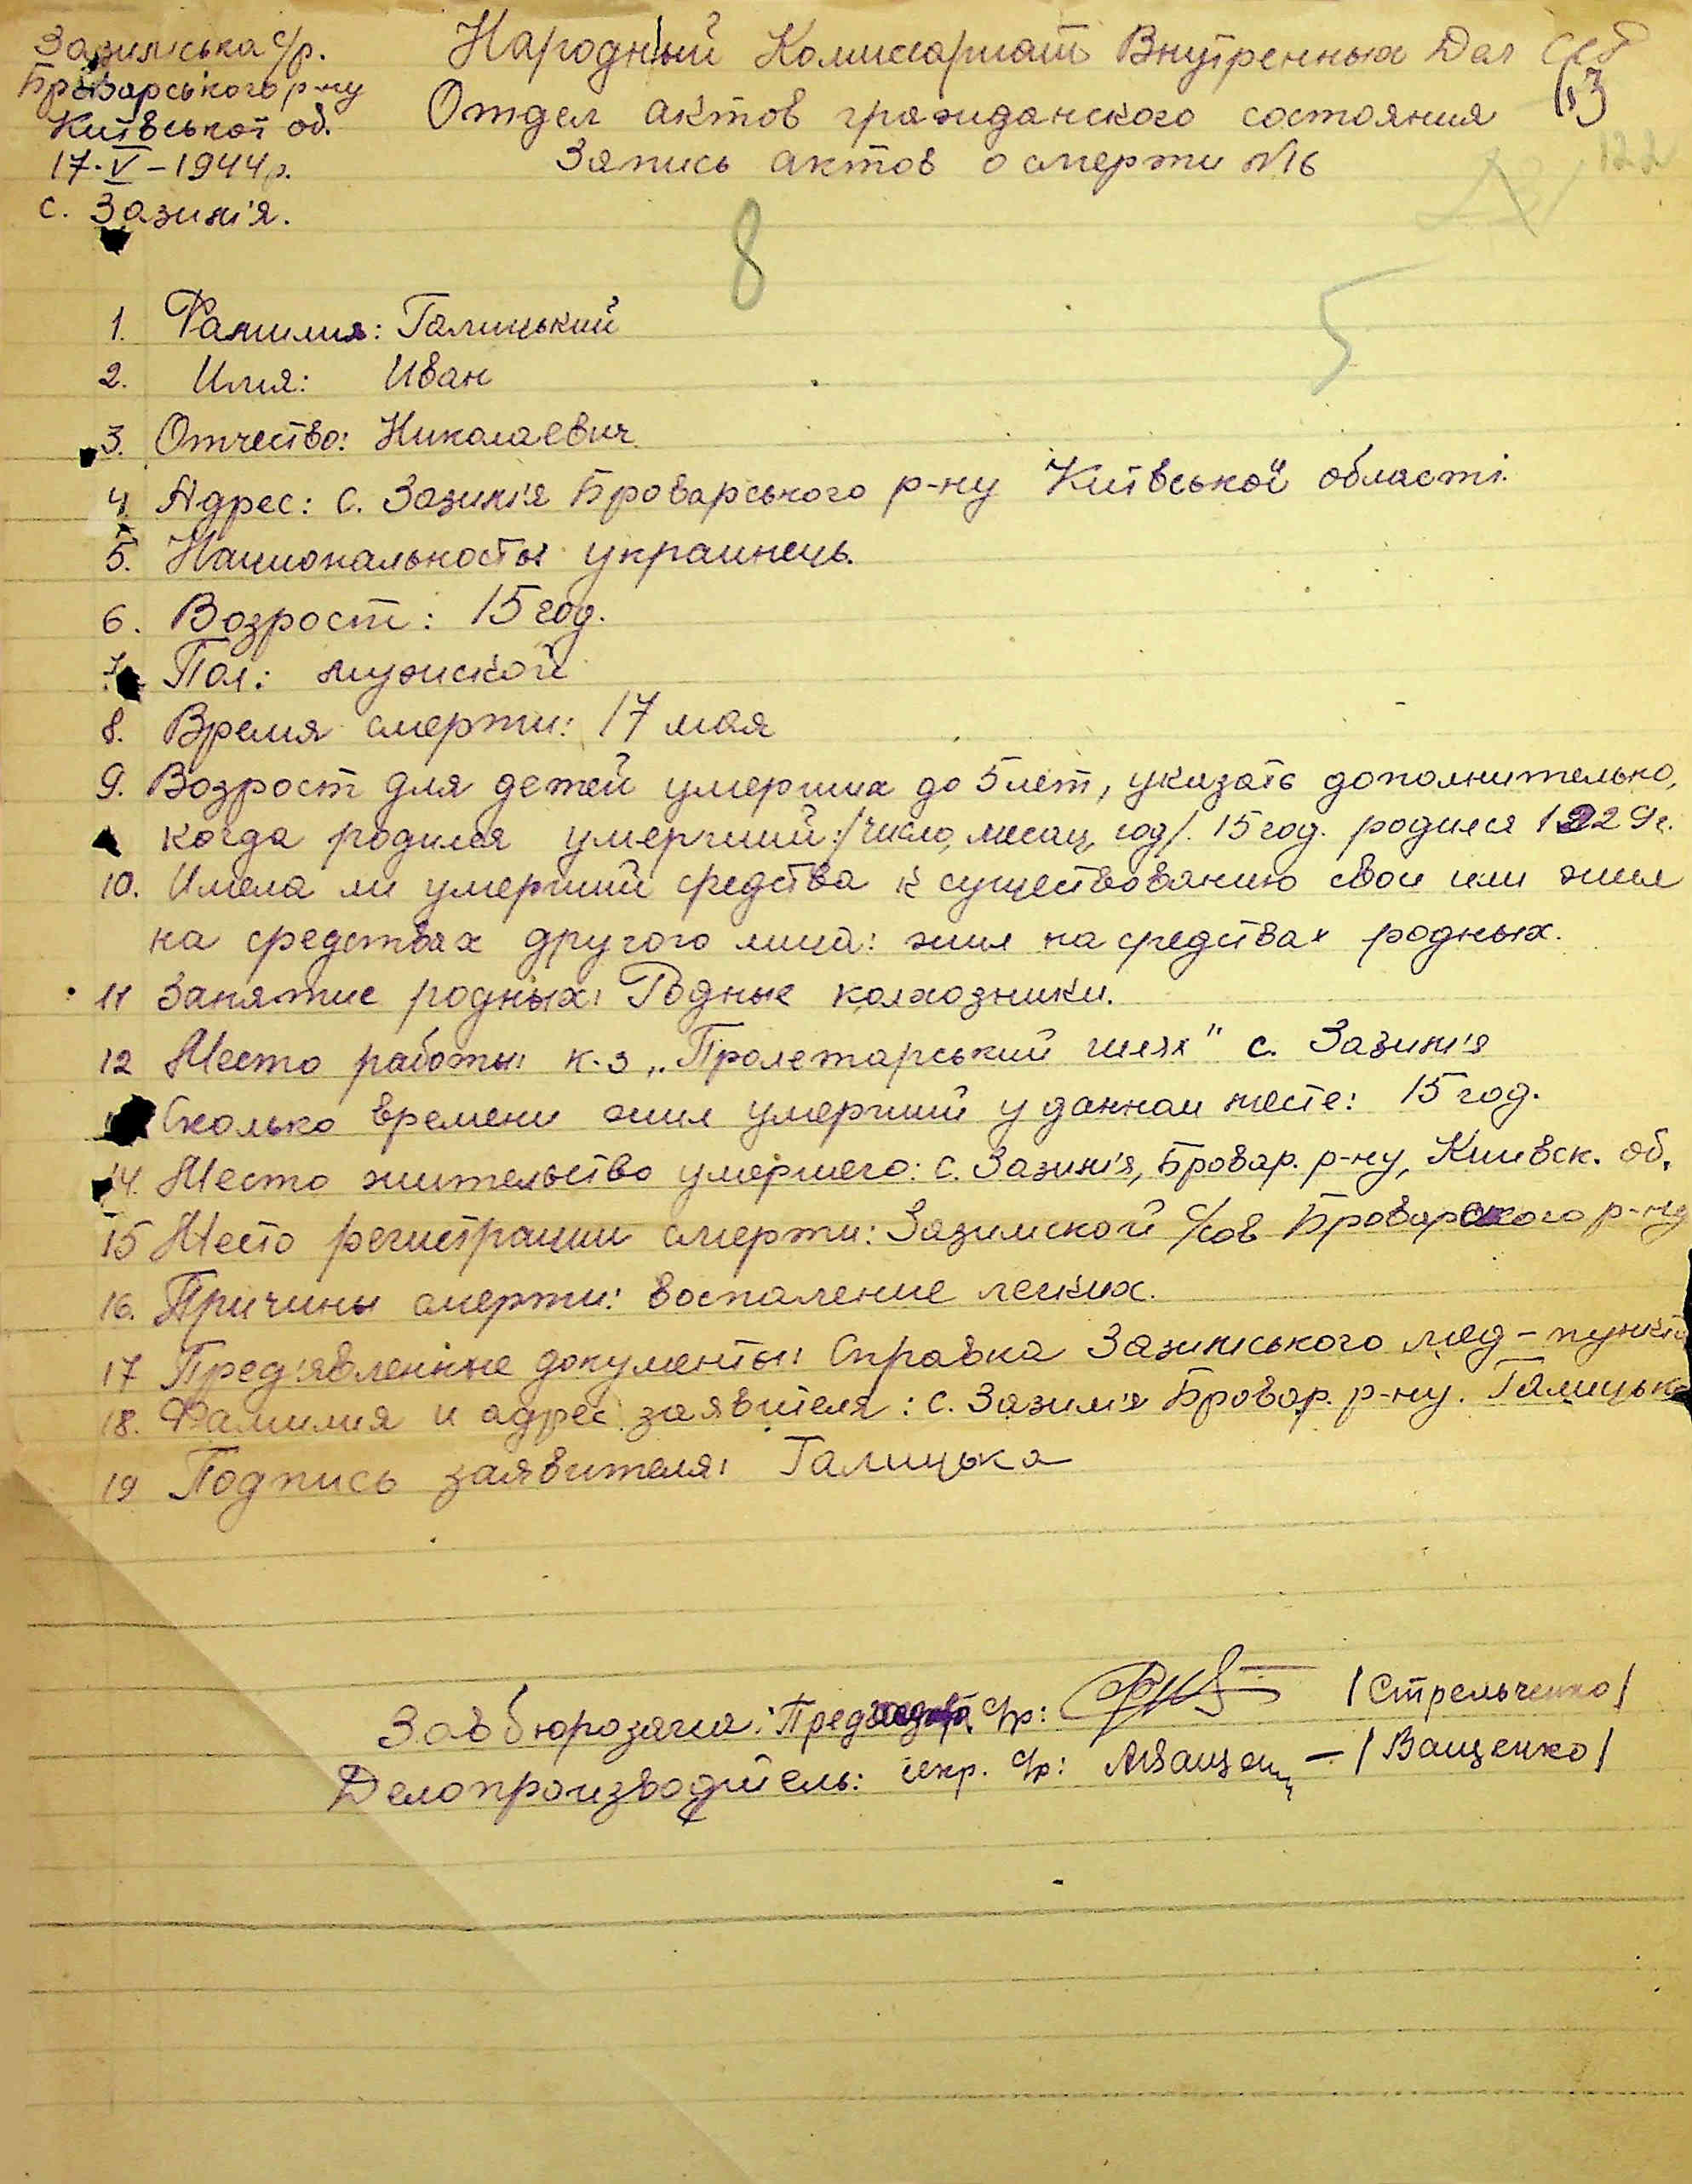 Зазимська с/р.
Броварського р-ну
Київської об.
17·V–1944р.
с. Зазим'я.
Народный Комиссариат Внутренных Дел
Отдел актов гражданского состояния
Запись актов о смерти №16
8
5
1. Фамилия: Галицький
2. Имя: Иван
3. Отчество: Николаевич
4. Адрес: с. Зазим'я Броварського р-ну Київської області.
5. Национальность: украинець.
6. Возрост: 15 год.
7. Пол: мужской
8. Время смерти: 17 мая
9. Возрост для детей умерших до 5 лет, указать дополнительно,
когда родился умерший:/число, месяц, год/. 15 год. родился 1929г.
10. Имела ли умерший средства к существованию свои или жил
на средствах другого лица: жил на средствах родных.
11 Занятие родных: Родные колхозники.
12 Место работы: к-з „Пролетарський шлях" с. Зазим'я
Сколько времени жил умерший у данном месте: 15 год.
14. Место жительство умершего: с. Зазим'я, Бровар. р-ну, Киевск. об.
15 Место регистрации смерти: Зазимской с/сов Броварского р-ну
16. Причины смерти: воспаление легких.
17 Пред'явленные документы: Справка Зазимського мед-пункта
18. Фамилия и адрес заявителя: с. Зазим'я Бровар. р-ну. Галицька
19 Подпись заявителя: Галицька
Зав бюрозагса: Пред с/р: /Стрельченко/
Делопроизводитель: секр. с/р: – /Ващенко/